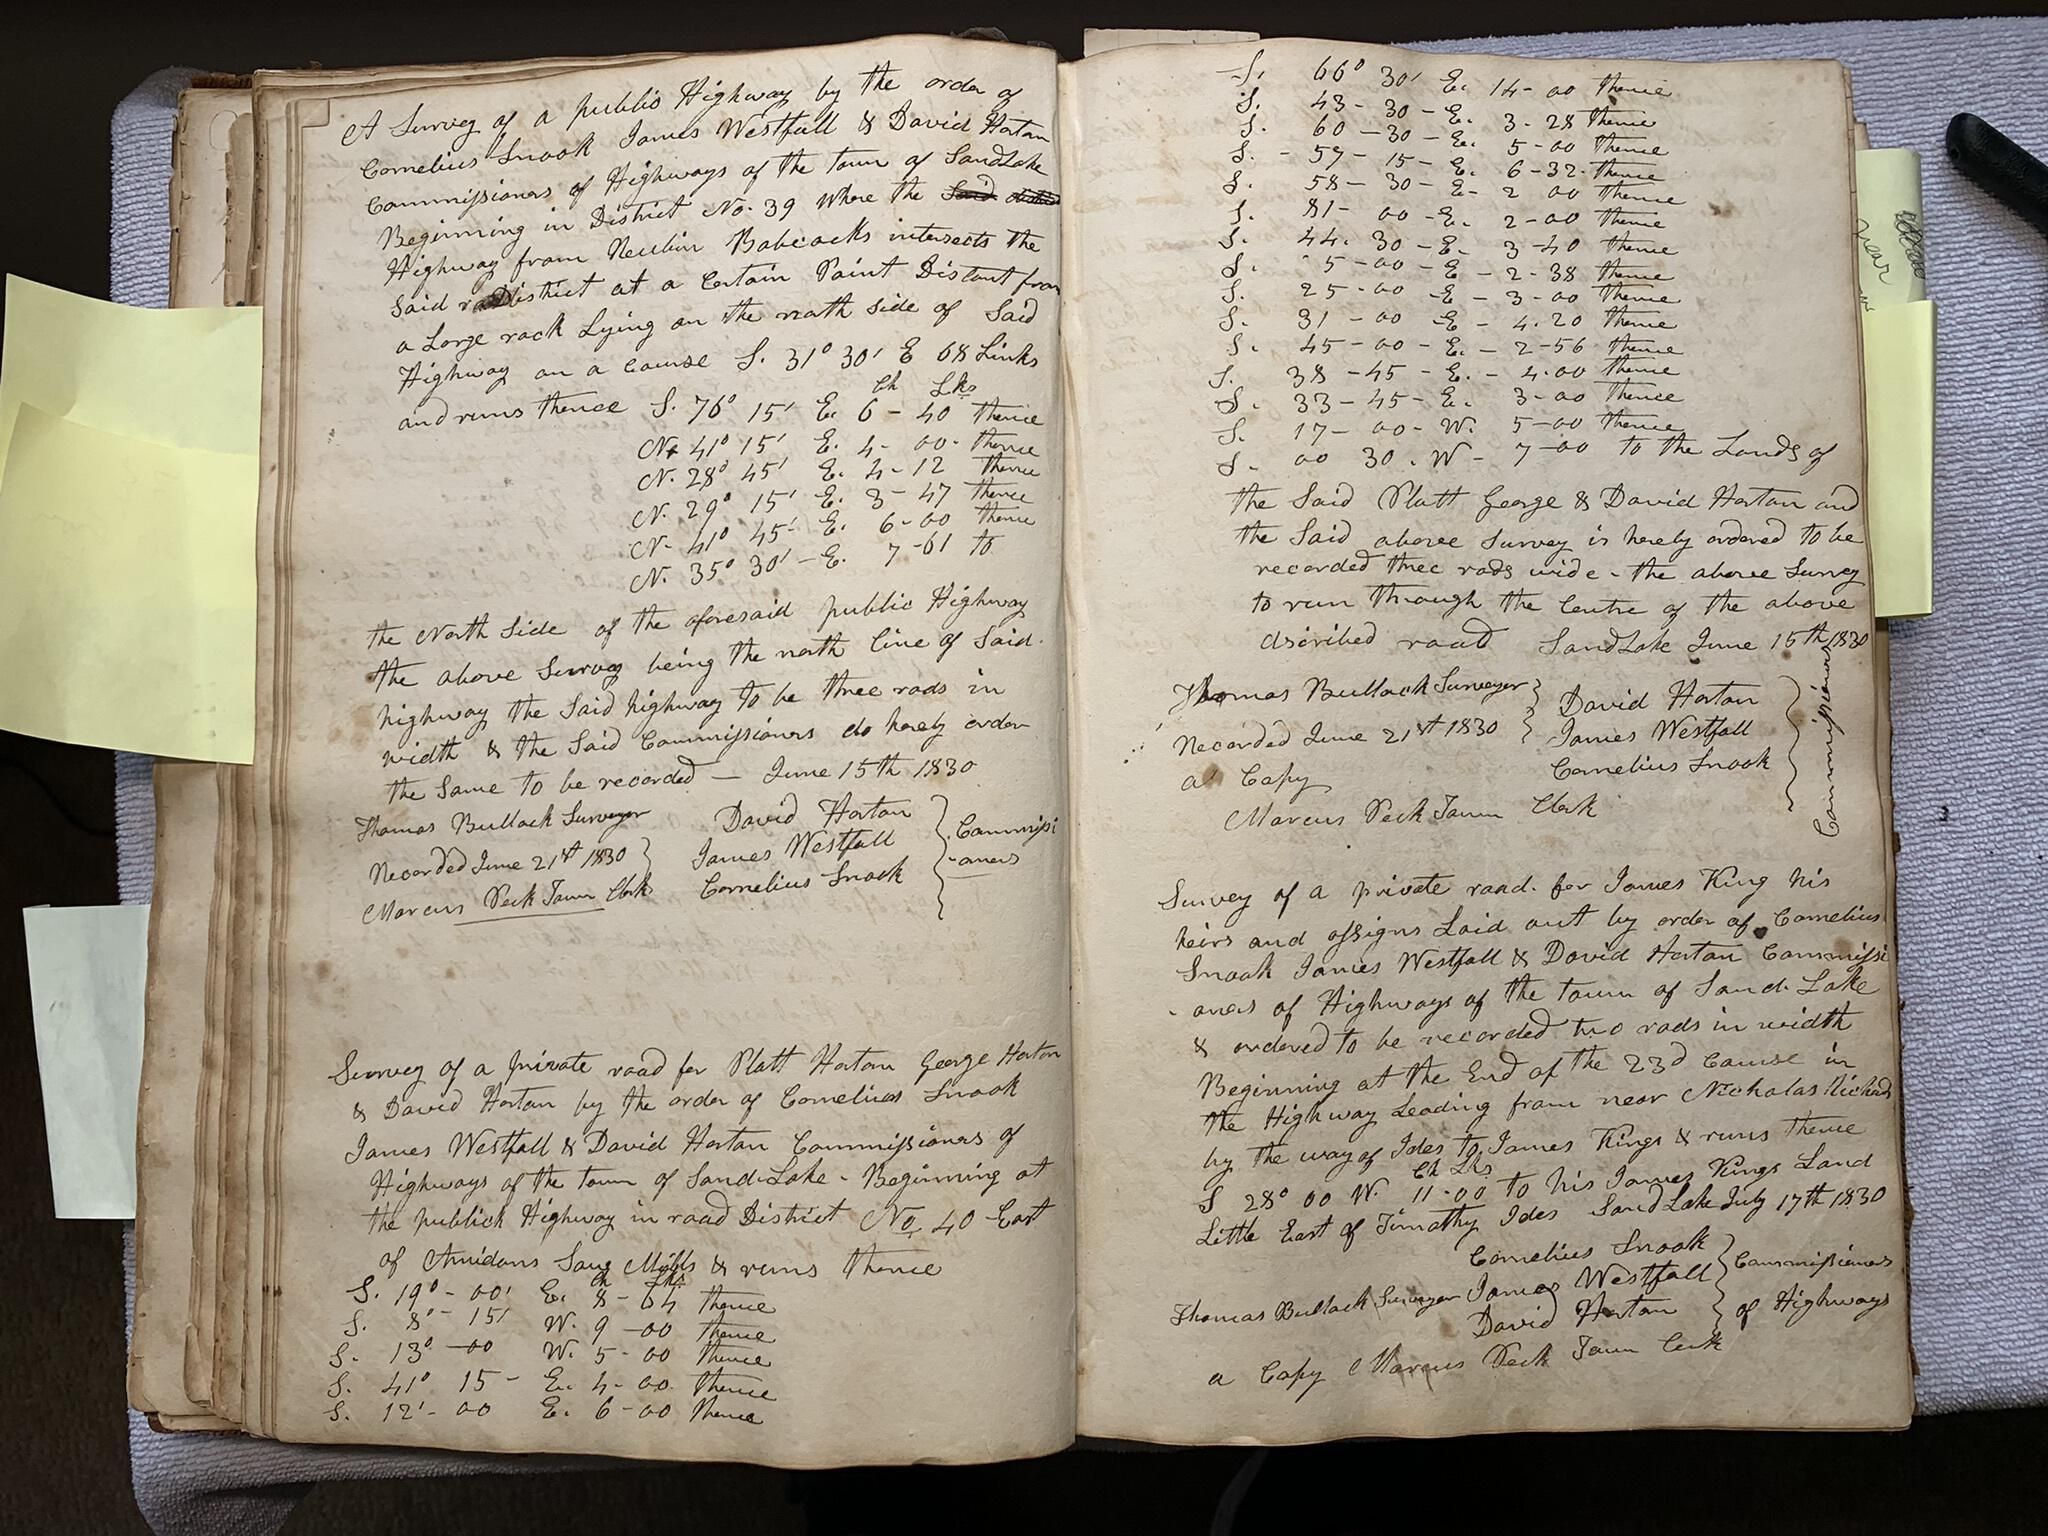 A Survey of a publis Highway by the order of
Cornelius Snook James Westfall & David Horton
Commissioners of Highways of the town of SandLake
Beginning in District No. 39 Where the Said
Highway from Reubin Babcocks intersects the
Said District at a Certain Point Distant from
a Large rock Lying on the north side of Said
Highway on a Course S. 31° 30' E 68 Links
Ch Lks
and runs thence S. 76° 15' E. 6 - 40 thence
N. 41° 15' E. 4 - 00 - thence
N. 28° 45' E. 4 - 12 thence
N. 29° 15' E. 3 - 47 thence
N. 41° 45' - E. 6 - 00 thence
N. 35° 30' - E. 7 - 61 to
the North Side of the aforesaid public Highway
the above Survey being the north line of Said
highway the Said highway to be three rods in
width & the Said Commissioners do herely order
the Same to be recorded — June 15th 1830
Thomas Bullock Surveyor David Horton
Recorded June 21st 1830 James Westfall
Marcus Peck Town Clerk Cornelius Snook
Commissi
-oners
Survey of a private road for Platt Horton George Horton
& David Horton by the order of Cornelius Snook
James Westfall & David Horton Commissioners of
Highways of the town of Sand-Lake - Beginning at
the publick Highway in road District No. 40 East
of Amidons Saug Mills & runs thence
Ch Lks
S. 19° - 00' E. 8 - 64 thence
S. 8° - 15' W. 9 - 00 thence
S. 13° - 00 W. 5 - 00 thence
S. 41° 15 - E. 4 - 00 thence
S. 12' - 00 E. 6 - 00 thence
S. 66° 30' E. 14 - 00 thence
S. 43 - 30 - E. 3 - 28 thence
S. 60 - 30 - E. 5 - 00 thence
S. - 59 - 15 - E. 6 - 32 - thence
S. 58 - 30 - E - 2 00 thence
S. 81 - 00 - E. 2 - 00 thence
S. 44. 30 - E. 3 - 40 thence
S. 5 - 00 - E - 2 - 38 thence
S. 25 - 00 - E - 3 - 00 thence
S. 31 - 00 - E - 4.20 thence
S. 45 - 00 - E. - 2 - 56 thence
S. 38 - 45 - E. - 4.00 thence
S. 33 - 45 - E. 3 - 00 thence
S. 17 - 00 - W. 5 - 00 thence
S. 00 30 . W - 7 - 00 to the Lands of
the Said Platt George & David Horton and
the Said above Survey is herely ordered to be
recorded three rods wide - the above Survey
to run through the Centre of the above
dscribed road SandLake June 15th 1830
Thomas Bullock Surveyor David Horton
Recorded June 21st 1830 James Westfall
a Copy Cornelius Snook
Marcus Peck Town Clerk
Commissioners
Survey of a private road. for James King his
heirs and assigns Laid out by order of Cornelius
Snook James Westfall & David Horton Commissi
-oners of Highways of the town of Sand-Lake
& ordered to be recorded two rods in width
Beginning at the End of the 23d Course in
the Highway Leading from near Nicholas Richard
by the way of Ides to James Kings & runs thence
Ch Lks
S 28° 00 W. 11 - 00 to his James Kings Land
Little East of Timothy Ides Sand Lake July 17th 1830
Cornelius Snook
Thomas Bullock Surveyor James Westfall
David Horton
Commissioners
of Highways
a Copy Marcus Peck Town Clerk
near